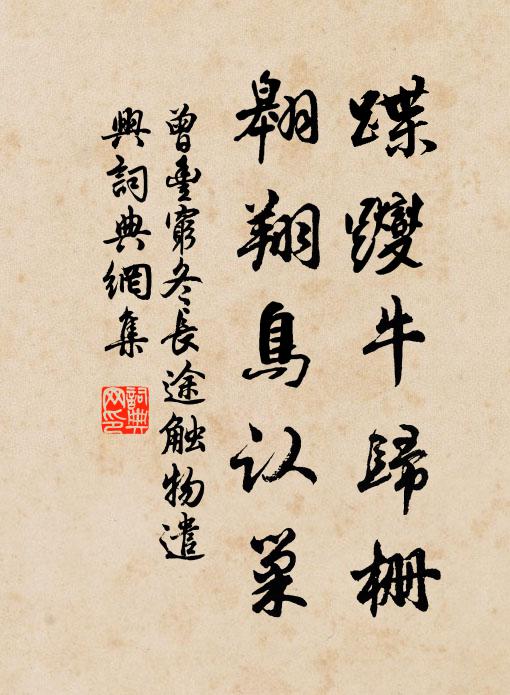 蹀躞牛歸柵
翱翔鳥认巢
曾豐窮冬長途触物遣
興詞典網集
詞典
网印